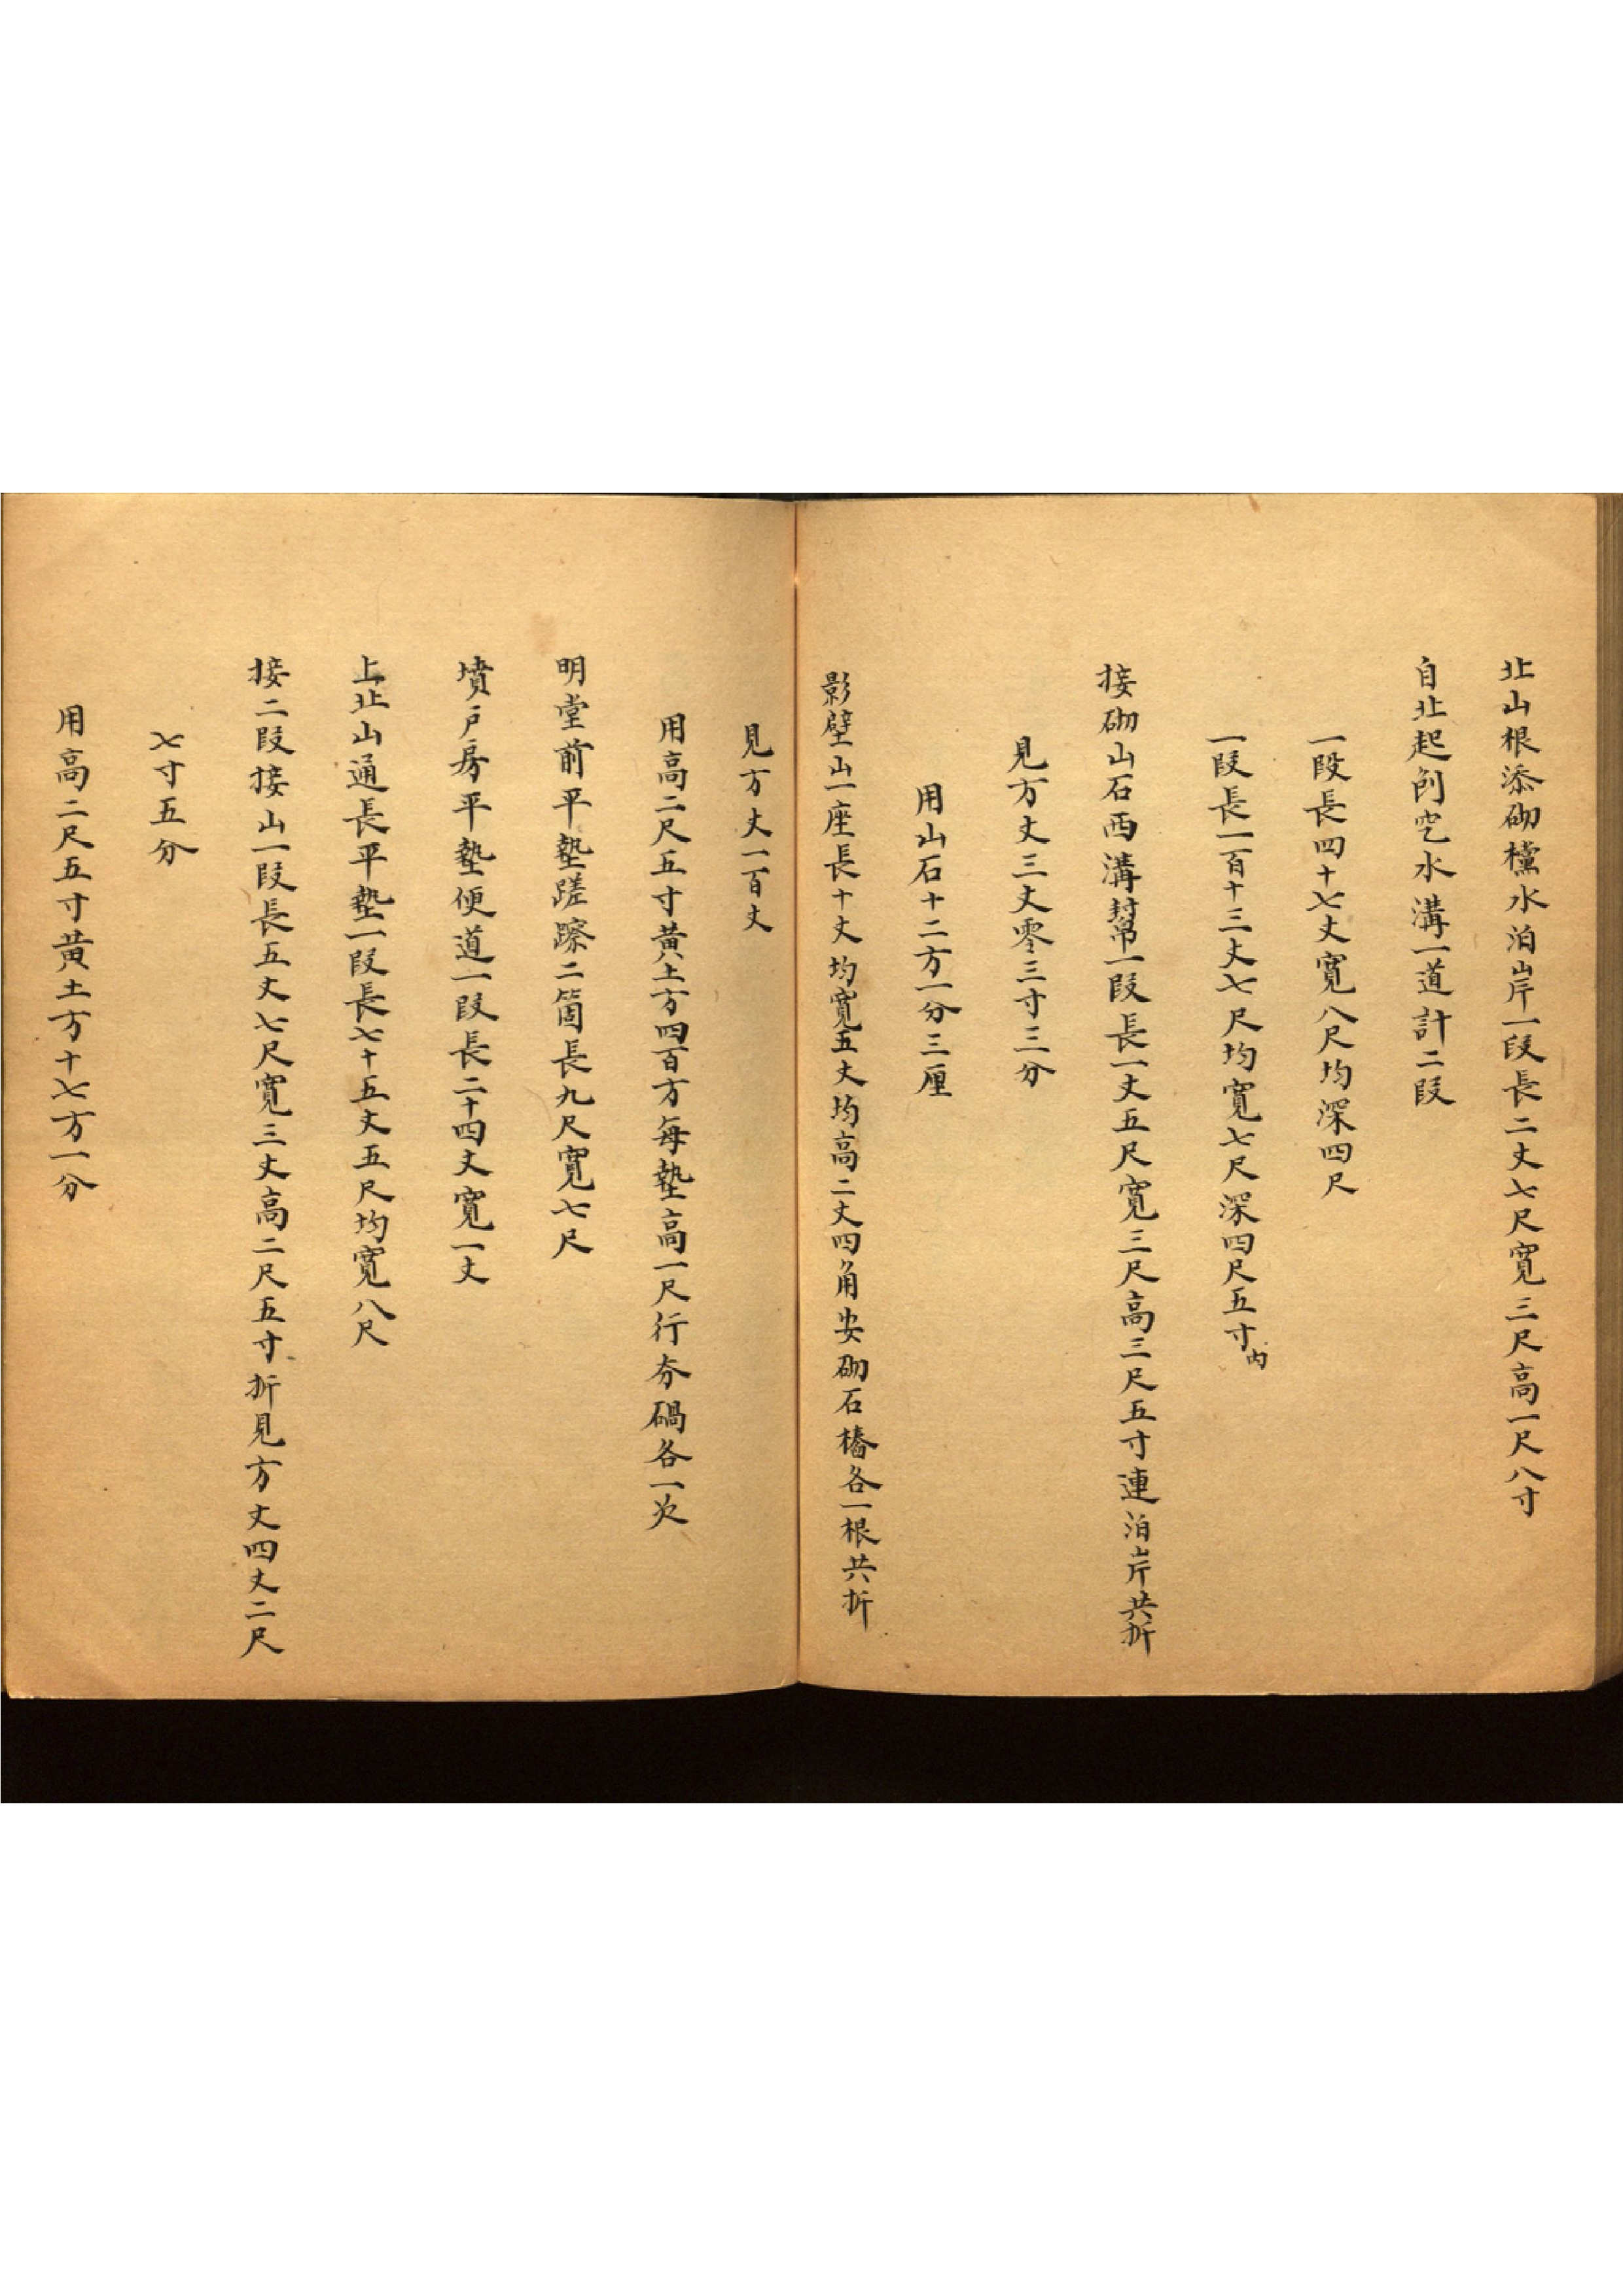 北山根添砌欓水泊岸一段長二丈七尺寬三尺高一尺八寸
自北起刨空水溝一道計二段
一段長四十七丈寬八尺均深四尺
一段長一百十三丈七尺均寬七尺深四尺五寸內
接砌山石西溝幫一段長一丈五尺寬三尺高三尺五寸連泊岸共折
見方丈三丈零三寸三分
用山石十二方一分三厘
影壁山一座長十丈均寬五丈均高二丈四角安砌石樁各一根共折
見方丈一百丈
用高二尺五寸黃土方四百方每墊高一尺行夯硪各一次
明堂前平墊蹉䠕二箇長九尺寬七尺
墳戶房平墊便道一段長二十四丈寬一丈
上北山通長平墊一段長七十五丈五尺均寬八尺
接二段接山一段長五丈七尺寬三丈高二尺五寸折見方丈四丈二尺
七寸五分
用高二尺五寸黃土方十七方一分